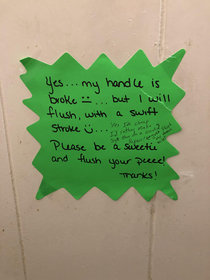 Yes... my handle is
broke :| ... but I will
flush, with a swift
stroke :) ...
Please be a sweetie
and flush your peeee!
Thanks!